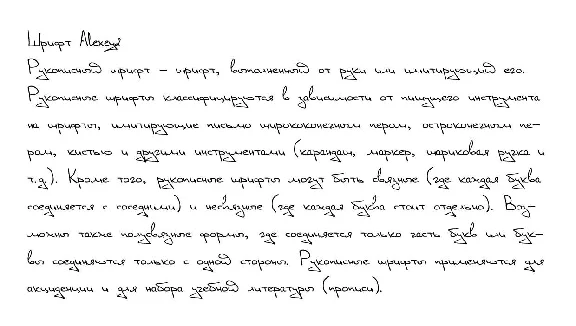 Шрифт Alexey
Рукописный шрифт – шрифт, выполненный от руки или имитирующий его.
Рукописные шрифты классифицируются в зависимости от пишущего инструмента
на шрифты, имитирующие письмо ширококонечным пером, остроконечным пе-
ром, кистью и другими инструментами (карандаш, маркер, шариковая ручка и
т.д.). Кроме того, рукописные шрифты могут быть связные (где каждая буква
соединяется с соседними) и несвязные (где каждая буква стоит отдельно). Воз-
можны также полусвязные формы, где соединяется только часть букв или бук-
вы соединяются только с одной стороны. Рукописные шрифты применяются для
акциденции и для набора учебной литературы (прописи).